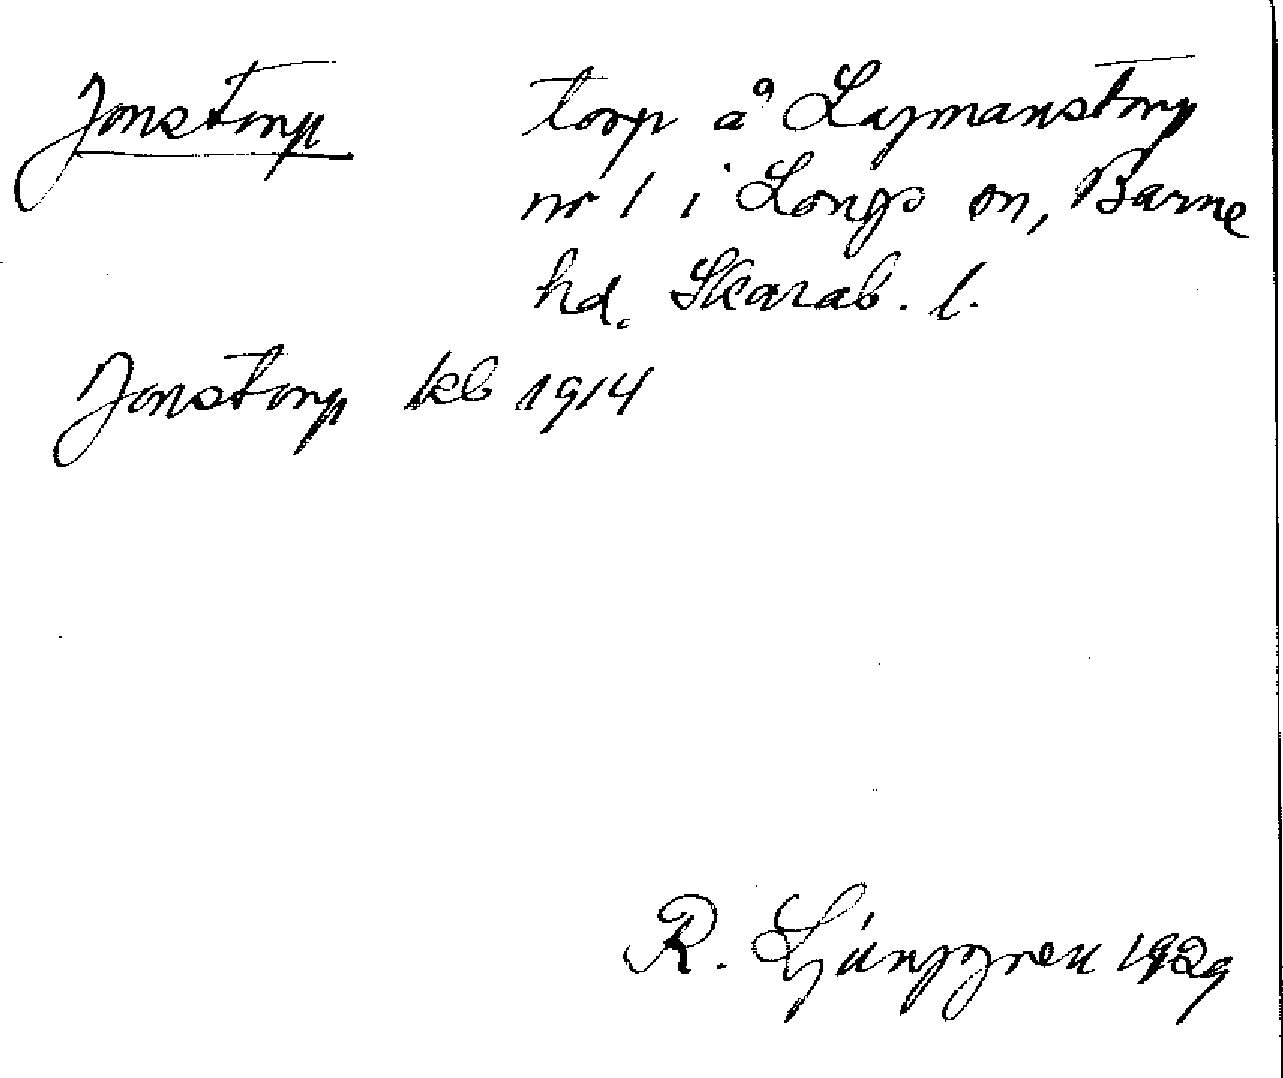 Jonstorp torp å Lagmanstorp
nr 1 i Longs sn, Barne
hd. Skarab. l.
Jonstorp kb 1914
R. Ljunggren 1929